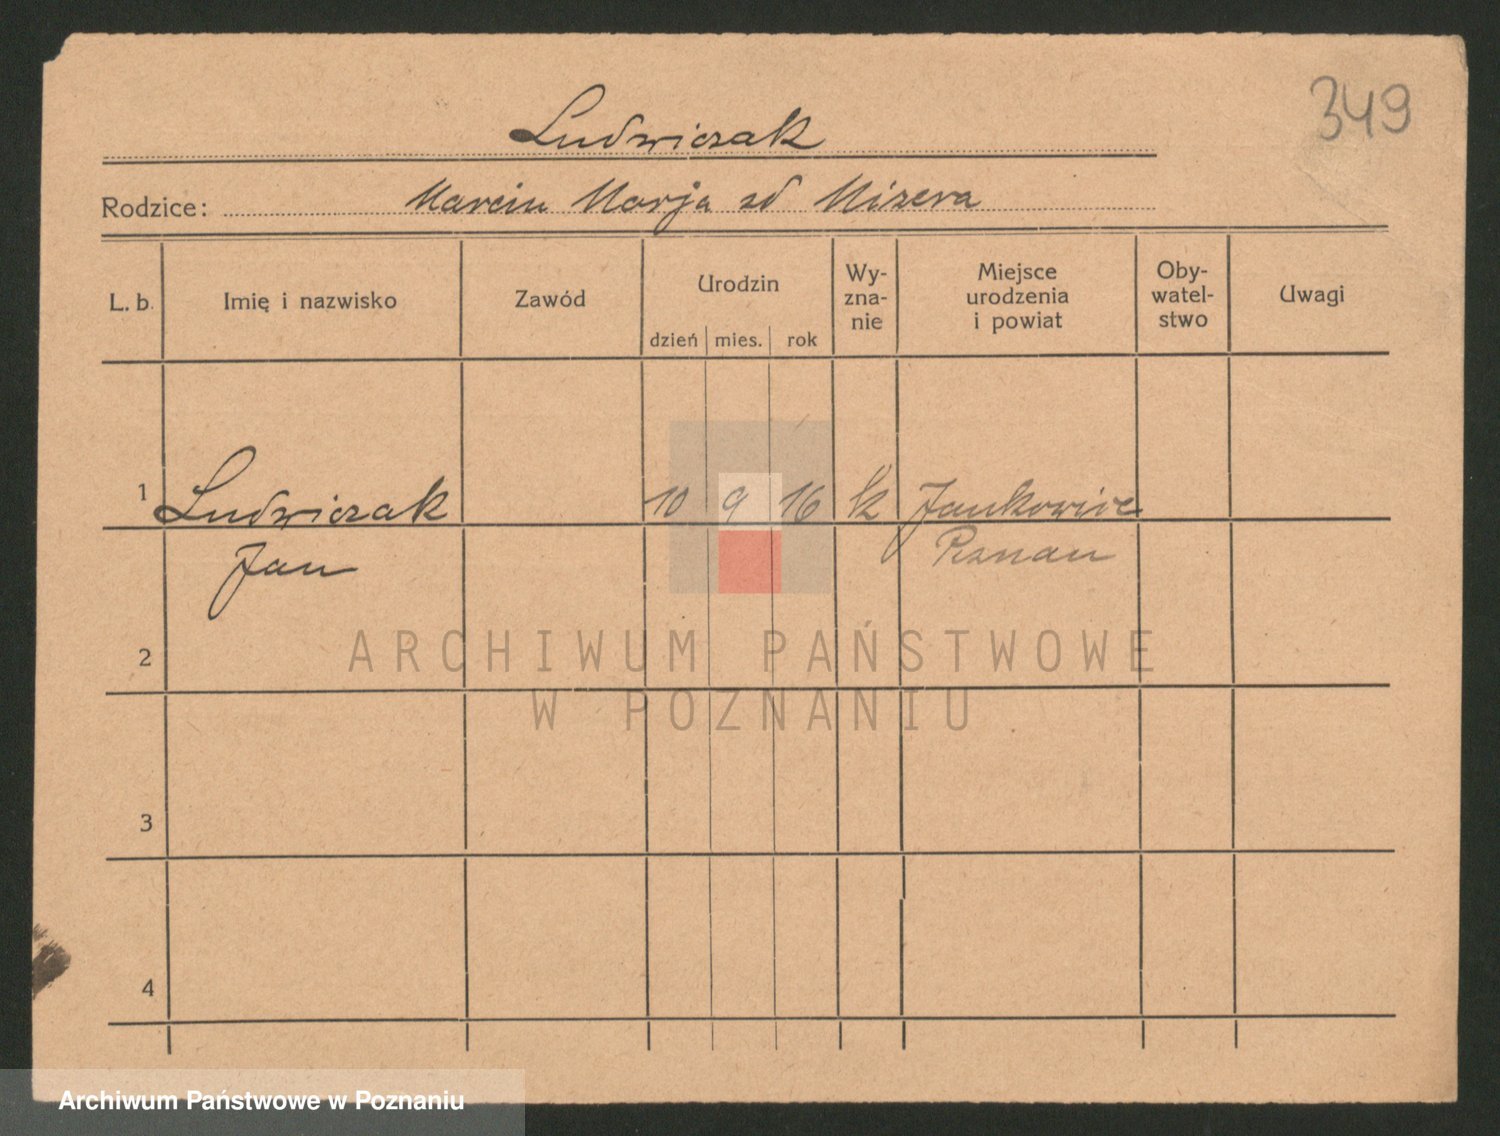 349
Ludwiczak
Rodzice: Marcin Marja zd Mizera
L. b. Imię i nazwisko Zawód Urodzin dzień mies. rok Wy-zna-nie Miejsce urodzenia i powiat Oby-watel-stwo Uwagi
1 Ludwiczak 10 9 16 k Jankowice
Jan Poznan
2
3
4
ARCHIWUM PAŃSTWOWE
W POZNANIU
Archiwum Państwowe w Poznaniu